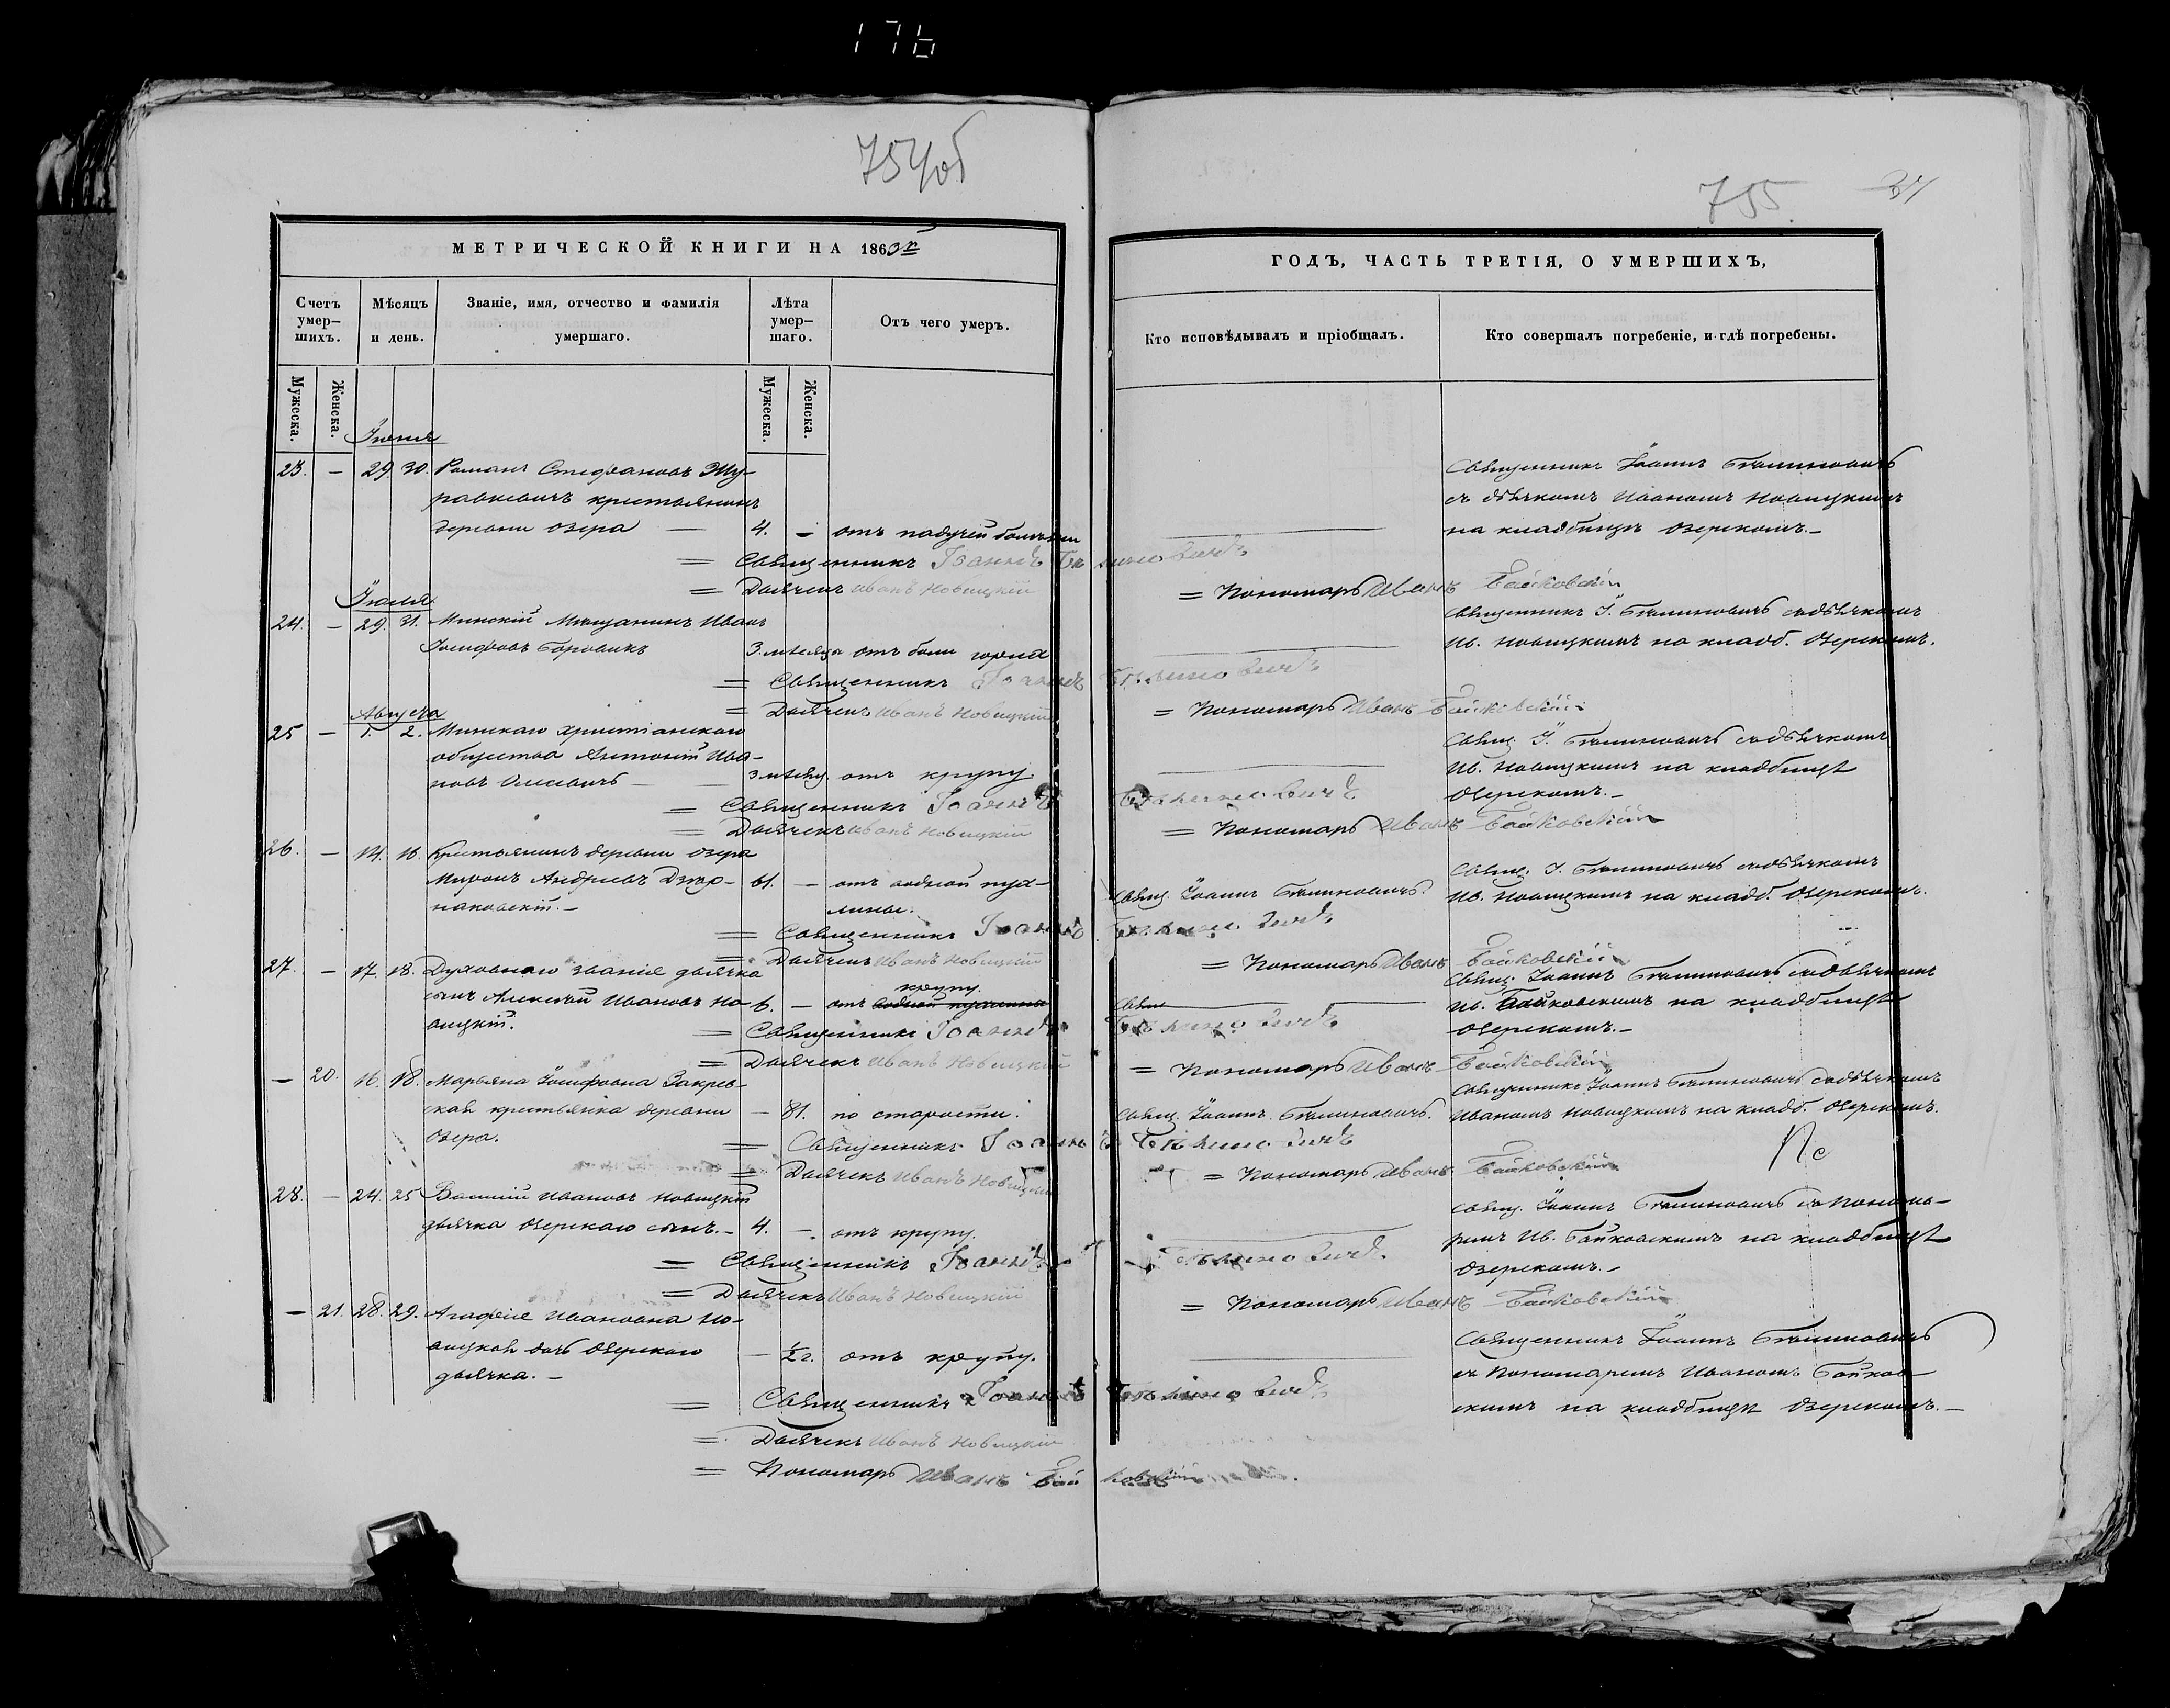 176
754об
МЕТРИЧЕСКОЙ КНИГИ НА 1863й
Счетъ умер–шихъ.
Мѣсяцъ и день.
Званіе, имя, отчество и фамилія умершаго.
Лѣта умер–шаго.
Отъ чего умеръ.
Мужеска.
Женска.
Мужеска.
Женска.
23. — 29 30. Романъ Стефановъ Жу-
равкевичъ крестьянинъ
деревни Озера — 4. — отъ падучей болѣзни
= Священникъ Іоаннъ Бѣлиновичъ
= Дьячекъ Иванъ Новицкій
Іюля
24. — 29. 31. Минскій Мѣщанинъ Иванъ
Іосифовъ Боровикъ 3. мѣсяца отъ боли горла
= Священникъ Іоаннъ Бѣлиновичъ
= Дьячекъ Иванъ Новицкій
Августа
25 — 1. 2. Минскаго христіанскаго
общества Антоній Ива-
новъ 3. мѣсяц. отъ крупу.
= Священникъ Іоаннъ Бѣлиновичъ
= Дьячекъ Иванъ Новицкій
26. — 14. 16. Крестьянинъ деревни Озера
Миронъ Андреевъ 61. — отъ водной пух-
лины.
= Священникъ Іоаннъ Бѣлиновичъ
= Дьячекъ Иванъ Новицкій
27. — 17. 18. Духовнаго званія дьячка
сынъ Алексѣй Ивановъ Но- 6. — отъ водной пухлины крупу.
вицкій.
= Священникъ Іоаннъ Бѣлиновичъ
= Дьячекъ Иванъ Новицкій
— 20. 16. 18. Марьяна Іосифовна Закрев-
ская крестьянка деревни — 81. по старости.
Озера.
= Священникъ Іоаннъ Бѣлиновичъ
= Дьячекъ Иванъ Новицкій
28. — 24. 25 Василій Ивановъ Новицкій
дьячка Озерскаго сынъ. — 4. — отъ крупу.
= Священникъ Іоаннъ Бѣлиновичъ
= Дьячекъ Иванъ Новицкій
— 21. 28. 29. Агафія Ивановна Но-
вицкая дочь Озерскаго — ½ г. отъ крупу.
дьячка. —
= Священникъ Іоаннъ Бѣлиновичъ
= Дьячекъ Иванъ Новицкій
= Пономарь Иванъ Байковскій
755
37
ГОДЪ, ЧАСТЬ ТРЕТІЯ, О УМЕРШИХЪ,
Кто исповѣдывалъ и пріобщалъ.
Кто совершалъ погребеніе, и гдѣ погребены.
Священникъ Іоаннъ Бѣлиновичъ
съ дьячкомъ Иваномъ Новицкимъ
на кладбищѣ Озерскомъ. —
= Пономарь Иванъ Байковскій
Священникъ І. Бѣлиновичъ съ дьячкомъ
Ив. Новицкимъ на кладб. Озерскомъ.
= Пономарь Иванъ Байковскій
Свящ. І. Бѣлиновичъ съ дьячкомъ
Ив. Новицкимъ на кладбищѣ
Озерскомъ. —
= Пономарь Иванъ Байковскій
Свящ. І. Бѣлиновичъ съ дьячкомъ
Свящ. Іоаннъ Бѣлиновичъ. Ив. Новицкимъ на кладб. Озерскомъ.
= Пономарь Иванъ Байковскій
Свящ. Іоаннъ Бѣлиновичъ съ дьячкомъ
Ив. Байковскимъ на кладбищѣ
Озерскомъ. —
= Пономарь Иванъ Байковскій
Священникъ Іоаннъ Бѣлиновичъ съ дьячкомъ
Свящ. Іоаннъ Бѣлиновичъ. Иваномъ Новицкимъ на кладб. Озерскомъ.
= Пономарь Иванъ Байковскій
Свящ. Іоаннъ Бѣлиновичъ съ Понома-
ремъ Ив. Байковскимъ на кладбищѣ
Озерскомъ. —
= Пономарь Иванъ Байковскій
Священникъ Іоаннъ Бѣлиновичъ
съ Пономаремъ Иваномъ Байков-
скимъ на кладбищѣ Озерскомъ. —